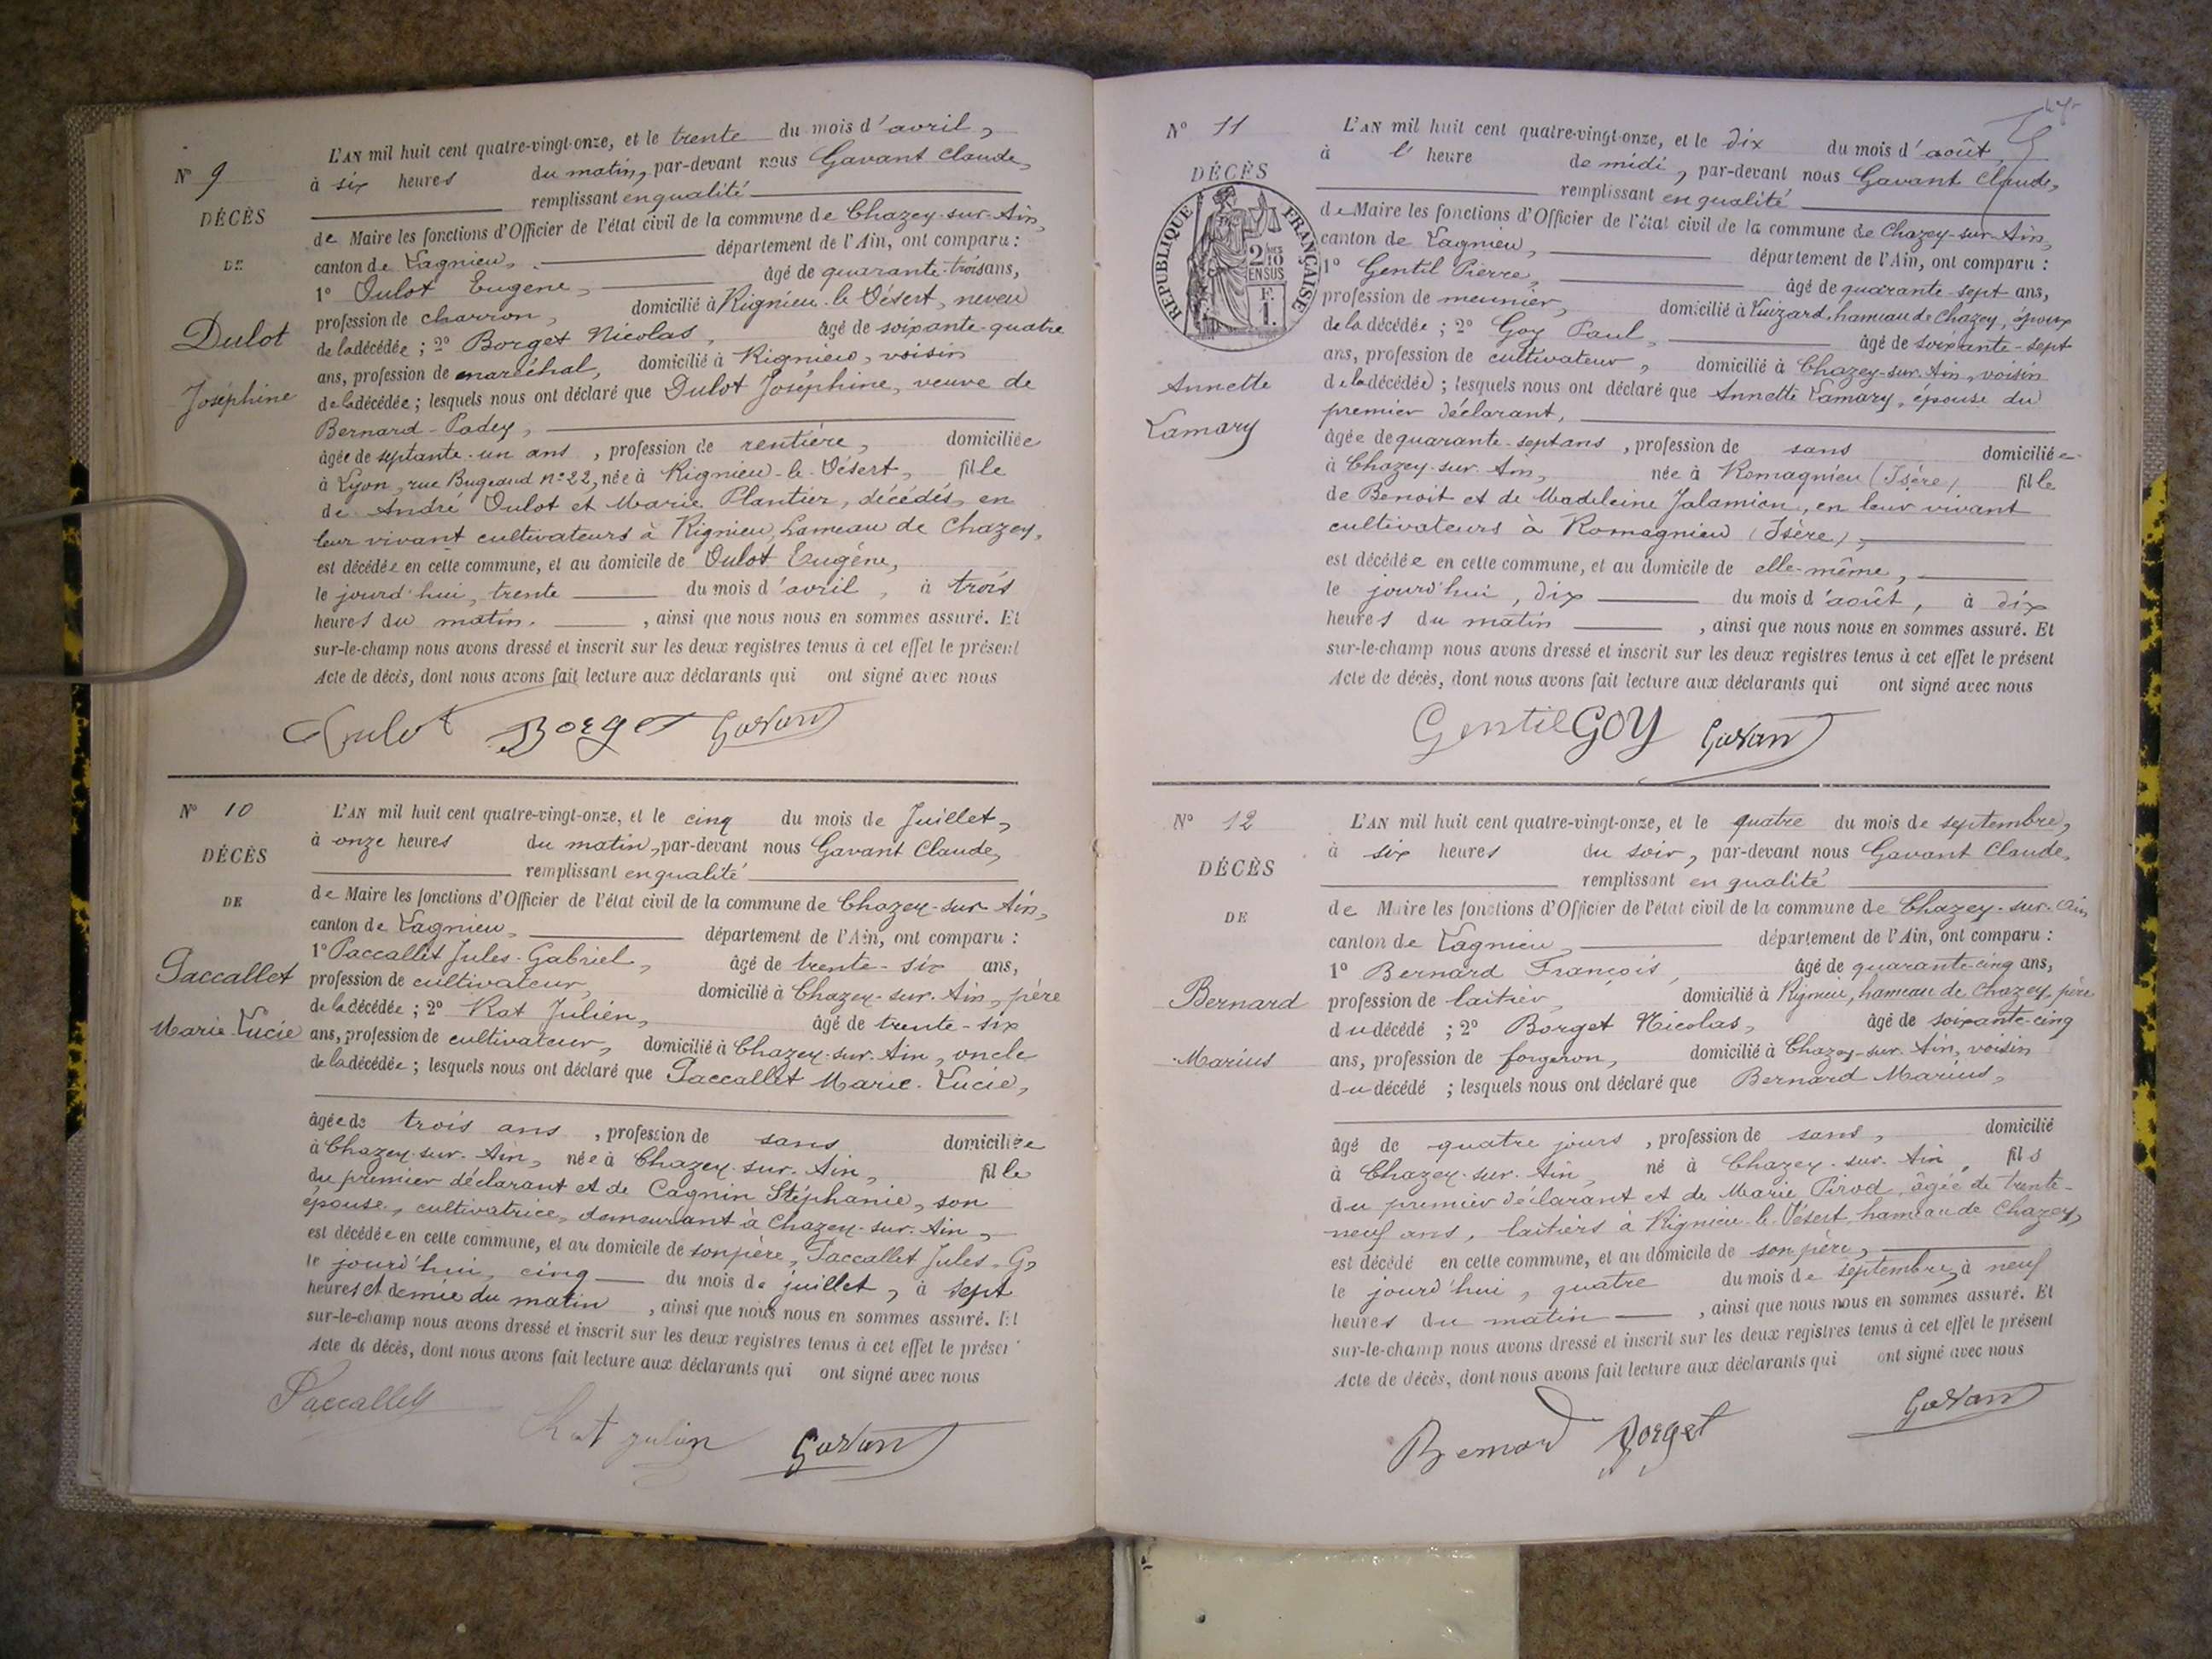 N° 9
DÉCÈS
DE
Dulot
Joséphine
L'AN mil huit cent quatre-vingt-onze, et le trente du mois d'avril,
à six heures du matin, par-devant nous Gavant Claude,
remplissant en qualité
de Maire les fonctions d'Officier de l'état civil de la commune de Chazey-sur-Ain,
canton de Lagnieu, département de l'Ain, ont comparu :
1° Dulot Eugène, âgé de quarante-trois ans,
profession de charron, domicilié à Rignieu-le-Désert, neveu
de la décédée ; 2° Borget Nicolas, âgé de soixante-quatre
ans, profession de maréchal, domicilié à Rignieu, voisin
de la décédée ; lesquels nous ont déclaré que Dulot Joséphine, veuve de
Bernard-Padey,
âgée de septante-un ans, profession de rentière, domiciliée
à Lyon, rue Bugeaud n° 22, née à Rignieu-le-Désert, fille
de André Dulot et Marie Plantier, décédés, en
leur vivant cultivateurs à Rignieu, hameau de Chazey,
est décédée en cette commune, et au domicile de Dulot Eugène,
le jourd'hui, trente du mois d'avril, à trois
heures du matin. , ainsi que nous nous en sommes assuré. Et
sur-le-champ nous avons dressé et inscrit sur les deux registres tenus à cet effet le présent
Acte de décès, dont nous avons fait lecture aux déclarants qui ont signé avec nous
Dulot Borget Gavant
N° 10
DÉCÈS
DE
Paccallet
Marie-Lucie
L'AN mil huit cent quatre-vingt-onze, et le cinq du mois de Juillet,
à onze heures du matin, par-devant nous Gavant Claude,
remplissant en qualité
de Maire les fonctions d'Officier de l'état civil de la commune de Chazey-sur-Ain,
canton de Lagnieu, département de l'Ain, ont comparu :
1° Paccallet Jules-Gabriel, âgé de trente-six ans,
profession de cultivateur, domicilié à Chazey-sur-Ain, père
de la décédée ; 2° Rat Julien, âgé de trente-six
ans, profession de cultivateur, domicilié à Chazey-sur-Ain, oncle
de la décédée ; lesquels nous ont déclaré que Paccallet Marie-Lucie,
âgée de trois ans, profession de sans domiciliée
à Chazey-sur-Ain, née à Chazey-sur-Ain, fille
du premier déclarant et de Cagnin Stéphanie, son
épouse, cultivatrice, demeurant à Chazey-sur-Ain,
est décédée en cette commune, et au domicile de son père, Paccallet Jules-G,
le jourd'hui, cinq du mois de juillet, à sept
heures et demie du matin, ainsi que nous nous en sommes assuré. Et
sur-le-champ nous avons dressé et inscrit sur les deux registres tenus à cet effet le présent
Acte de décès, dont nous avons fait lecture aux déclarants qui ont signé avec nous
Paccallet Rat julien Gavant
N° 11
DÉCÈS
RÉPUBLIQUE FRANÇAISE
2/10 EN SUS
F. 1.
Annette
Lamary
L'AN mil huit cent quatre-vingt-onze, et le dix du mois d'août
à l' heure de midi, par-devant nous Gavant Claude,
remplissant en qualité
de Maire les fonctions d'Officier de l'état civil de la commune de Chazey-sur-Ain,
canton de Lagnieu, département de l'Ain, ont comparu :
1° Gentil Pierre, âgé de quarante-sept ans,
profession de meunier, domicilié à Luizard, hameau de Chazey, époux
de la décédée ; 2° Goy Paul, âgé de soixante-sept
ans, profession de cultivateur, domicilié à Chazey-sur-Ain, voisin
de la décédée ; lesquels nous ont déclaré que Annette Lamary, épouse du
premier déclarant,
âgée de quarante-sept ans, profession de sans domiciliée
à Chazey-sur-Ain, née à Romagnieu (Isère) fille
de Benoit et de Madeleine Jalamion, en leur vivant
cultivateurs à Romagnieu (Isère),
est décédée en cette commune, et au domicile de elle-même,
le jourd'hui, dix du mois d'août, à dix
heures du matin, ainsi que nous nous en sommes assuré. Et
sur-le-champ nous avons dressé et inscrit sur les deux registres tenus à cet effet le présent
Acte de décès, dont nous avons fait lecture aux déclarants qui ont signé avec nous
Gentil GOY Gavant
N° 12
DÉCÈS
DE
Bernard
Marius
L'AN mil huit cent quatre-vingt-onze, et le quatre du mois de septembre,
à six heures du soir, par-devant nous Gavant Claude,
remplissant en qualité
de Maire les fonctions d'Officier de l'état civil de la commune de Chazey-sur-Ain
canton de Lagnieu, département de l'Ain, ont comparu :
1° Bernard François, âgé de quarante-cinq ans,
profession de laitier, domicilié à Rignieu, hameau de Chazey, père
du décédé ; 2° Borget Nicolas, âgé de soixante-cinq
ans, profession de forgeron, domicilié à Chazey-sur-Ain, voisin
du décédé ; lesquels nous ont déclaré que Bernard Marius,
âgé de quatre jours, profession de sans, domicilié
à Chazey-sur-Ain, né à Chazey-sur-Ain, fils
du premier déclarant et de Marie Pirod, âgée de trente-
neuf ans, laitiers à Rignieu-le-Désert, hameau de Chazey,
est décédé en cette commune, et au domicile de son père,
le jourd'hui, quatre du mois de septembre, à neuf
heures du matin, ainsi que nous nous en sommes assuré. Et
sur-le-champ nous avons dressé et inscrit sur les deux registres tenus à cet effet le présent
Acte de décès, dont nous avons fait lecture aux déclarants qui ont signé avec nous
Bernard Borget Gavant